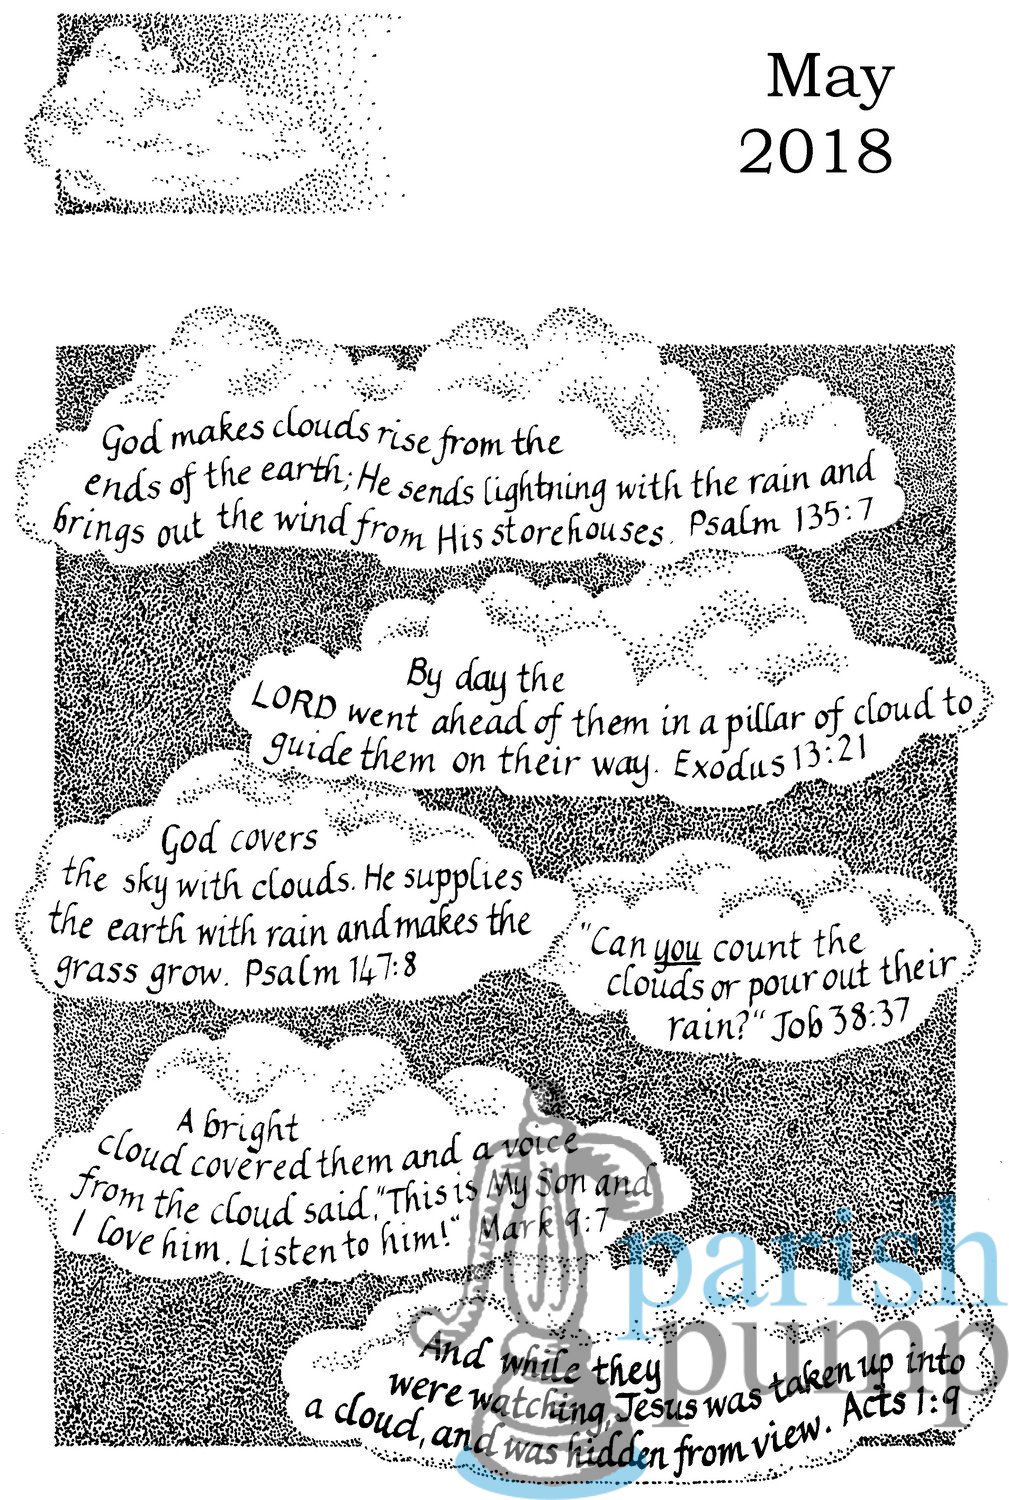 May
2018
God makes clouds rise from the
ends of the earth; He sends lightning with the rain and
brings out the wind from His storehouses. Psalm 135:7
By day the
LORD went ahead of them in a pillar of cloud to
guide them on their way. Exodus 13:21
God covers
the sky with clouds. He supplies
the earth with rain and makes the
grass grow. Psalm 147:8
"Can you count the
clouds or pour out their
rain?" Job 38:37
A bright
cloud covered them and a voice
from the cloud said, "This is My Son and
I love him. Listen to him!" Mark 9:7
And while they
were watching, Jesus was taken up into
a cloud, and was hidden from view. Acts 1:9
parish
pump